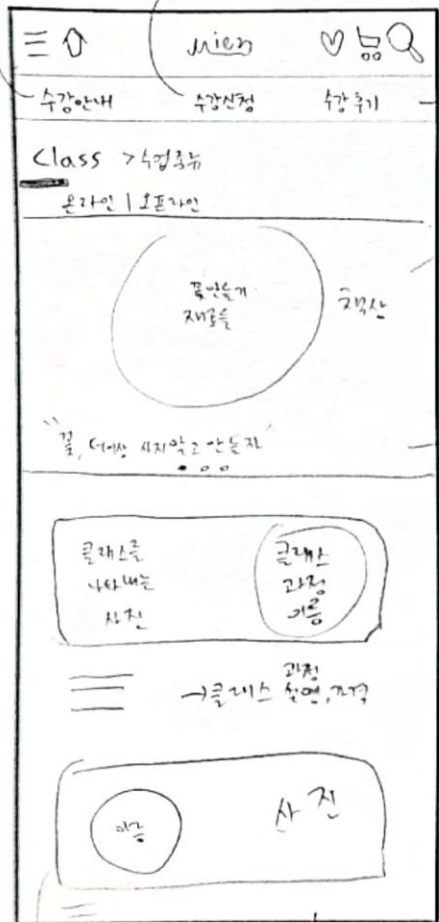 mien
수강안내 수강신청 수강 후기
Class > 수업종류
온라인 | 오프라인
꽃만들기
재료들
책상
"꽃, 더이상 사지않고 만들자"
클래스를
나타내는
사진
클래스
과정
이름
→클래스 과정
설명, 가격
이름
사진